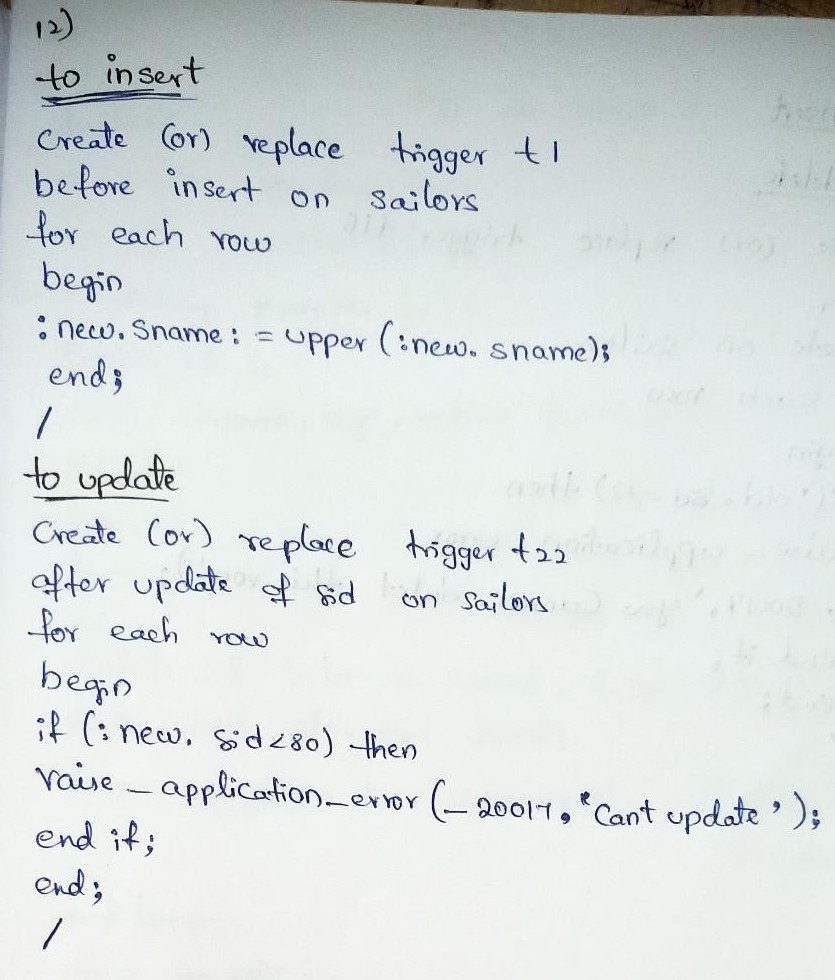 12)
to insert
Create (or) replace trigger t1
before insert on sailors
for each row
begin
:new.Sname:=upper(:new.sname);
end;
/
to update
Create (or) replace trigger t22
after update of sid on sailors
for each row
begin
if (:new.sid<80) then
raise_application_error(-20017,'Cant update');
end if;
end;
/